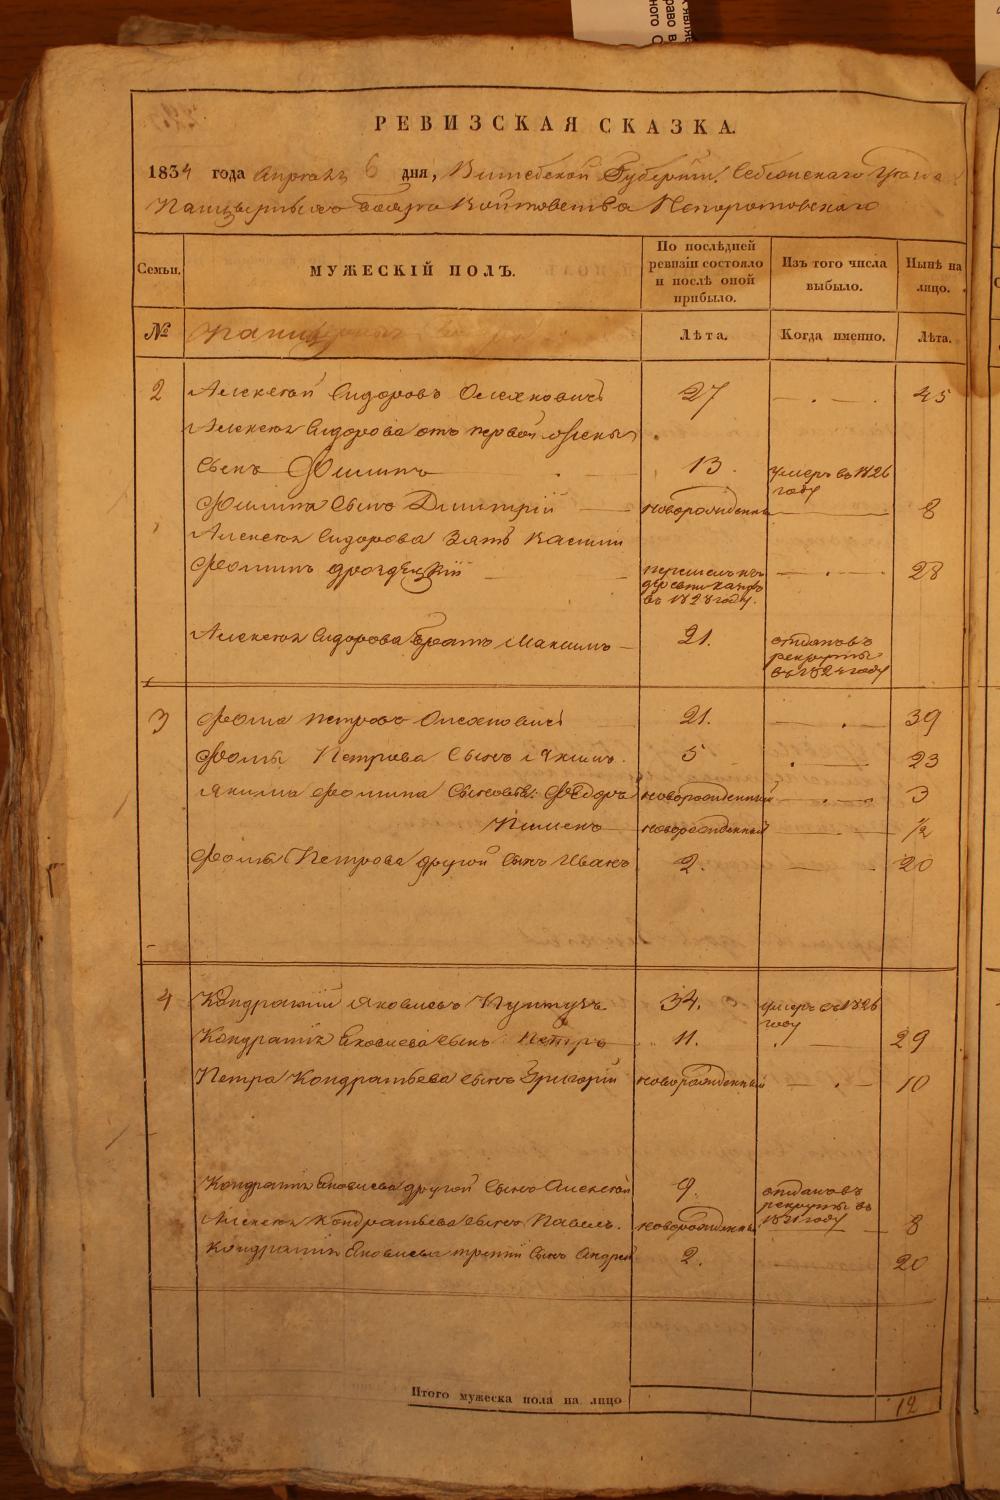 РЕВИЗСКАЯ СКАЗКА.
1834 года Апреля 6 дня, Витебской Губернии Себежскаго Уезда
Панцырныхъ бояръ Войтовства Непоротовскаго
Семьи.
МУЖЕСКІЙ ПОЛЪ.
По послѣдней ревизіи состояло и послѣ оной прибыло.
Изъ того числа выбыло.
Нынѣ на лицо.
№
Лѣта.
Когда именно.
Лѣта.
2 Алексѣй Сидоровъ 27 45
Алексѣя Сидорова отъ первой жены
сынъ Филипъ 13. умеръ въ 1826 году
Филипа сынъ Дмитрій новорожденны 8
Алексѣя Сидорова зять
Фоминъ 28
въ 1828 году.
Алексѣя Сидорова братъ Максимъ 21. отданъ въ рекруты
3 Фома Петровъ 21. 39
Фомы Петрова сынъ Якимъ 5 23
Якима Фомина сыновья: Фёдоръ новорожденный 3
Пименъ новорожденный 1/2
Фомы Петрова другой сынъ Иванъ 2. 20
4 Кондратій Яковлевъ 34. умеръ въ 1826 году
Кондратія Яковлева сынъ Петръ 11. 29
Петра Кондратьева сынъ Григорій новорожденный 10
Кондратія Яковлева другой сынъ Алексѣй 9. отданъ въ рекруты въ 1831 году
Алексѣя Кондратьева сынъ Павелъ. новорожденны 8
Кондратія Яковлева третій сынъ Андрей 2. 20
Итого мужеска пола на лицо 12